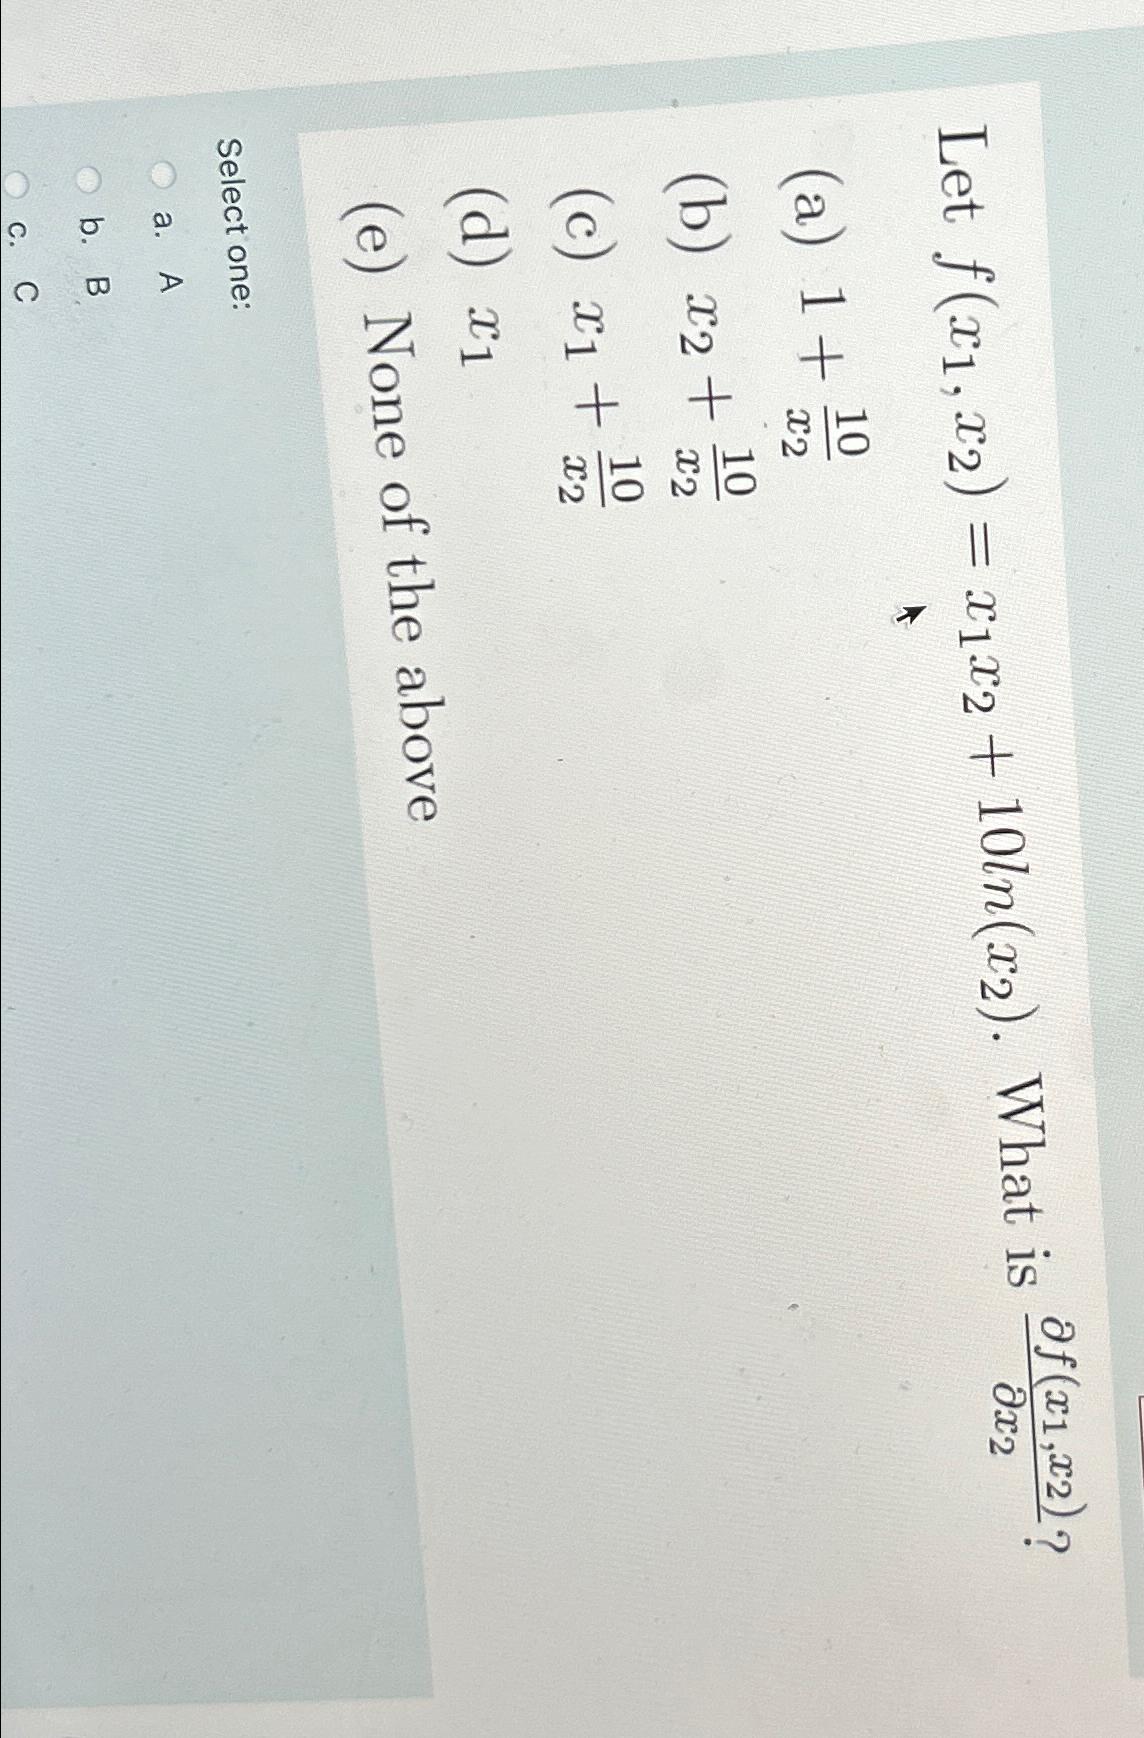 Let f(x₁, x₂) = x₁x₂ + 10ln(x₂). What is ∂f(x₁,x₂)/∂x₂?
(a) 1 + 10/x₂
(b) x₂ + 10/x₂
(c) x₁ + 10/x₂
(d) x₁
(e) None of the above
Select one:
a. A
b. B
c. C